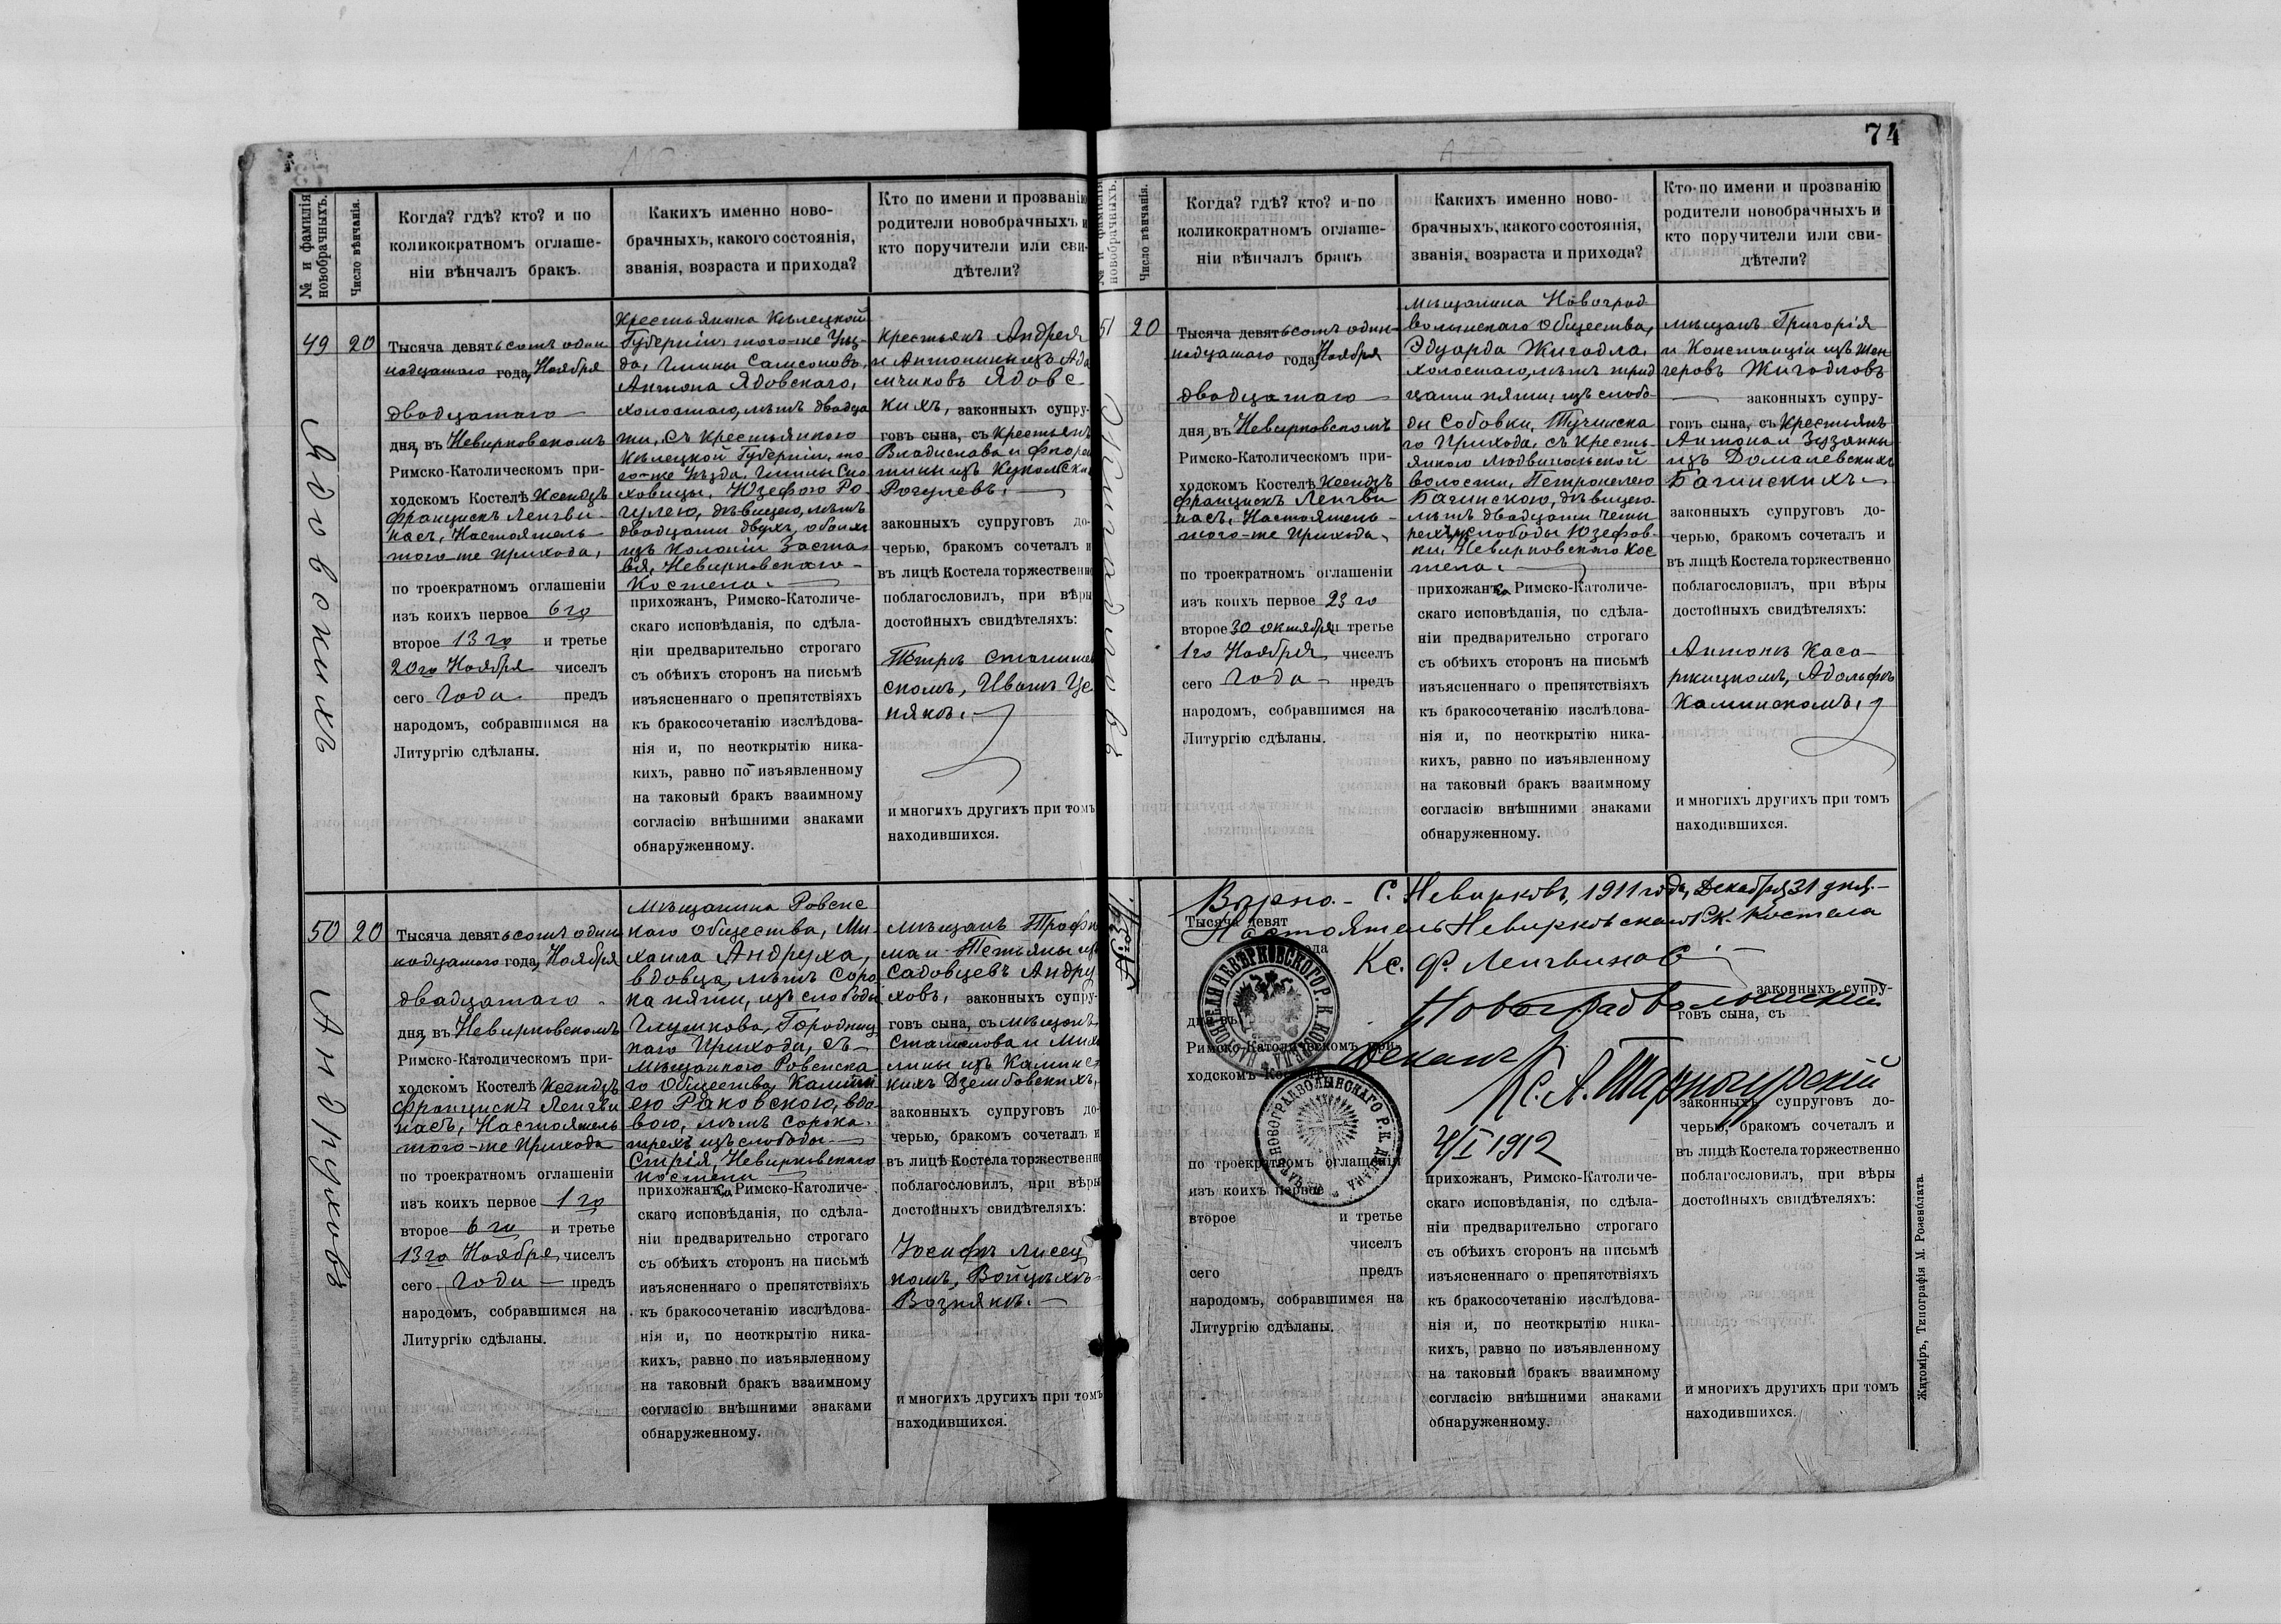 74
№ и фамилія новобрачныхъ.
Число вѣнчанія.
Когда? гдѣ? кто? и по
коликократномъ оглаше-
ніи вѣнчалъ бракъ.
Какихъ именно ново-
брачныхъ, какого состоянія,
званія, возраста и прихода?
Кто по имени и прозванію
родители новобрачныхъ и
кто поручители или сви-
дѣтели?
49
20
Ядовскихъ
Тысяча девятьсотъ один
надцатаго года, Ноября
двадцатаго
дня, въ Невирковскомъ
Римско-Католическомъ при-
ходскомъ Костелѣ Ксендзъ
Францискъ Ленгви-
насъ, Настоятель
того-же Прихода,
по троекратномъ оглашеніи
изъ коихъ первое 6го
второе 13го и третье
20го Ноября чиселъ
сего года предъ
народомъ, собравшимся на
Литургію сдѣланы.
Крестьянина Кѣлецкой
Губерніи того-же Уѣз-
да, Гмины Самсоновъ,
Антона Ядовскаго,
холостаго, лѣтъ двадца
ти, съ крестьянкою
Кѣлецкой Губерніи, то
го-же Уѣзда, Гмины Сно
ховицы, Юзефою Ро-
гулею, дѣвицею, лѣтъ
двадцати двухъ, обоихъ
изъ Колоніи Заста-
вя, Невирковскаго
Костела.
прихожанъ, Римско-Католиче-
скаго исповѣданія, по сдѣла-
ніи предварительно строгаго
съ обѣихъ сторонъ на письмѣ
изъясненнаго о препятствіяхъ
къ бракосочетанію изслѣдова-
нія и, по неоткрытію ника-
кихъ, равно по изъявленному
на таковый бракъ взаимному
согласію внѣшними знаками
обнаруженному.
крестьянъ Андрея
и Антонины изъ Ада
мчиковъ Ядовс
кихъ, законныхъ супру-
говъ сына, съ крестьянъ
Владислава и Флорен
тины изъ
Рогулевъ.
законныхъ супруговъ до-
черью, бракомъ сочеталъ и
въ лицѣ Костела торжественно
поблагословилъ, при вѣры
достойныхъ свидѣтеляхъ:
Петръ
скомъ, Иванъ Це
някъ.
и многихъ другихъ при томъ
находившихся.
50
20
Андруховъ
Тысяча девятьсотъ один
надцатаго года, Ноября
двадцатаго
дня, въ Невирковскомъ
Римско-Католическомъ при-
ходскомъ Костелѣ Ксендзъ
Францискъ Ленгви
насъ, Настоятель
того-же Прихода
по троекратномъ оглашеніи
изъ коихъ первое 1го
второе 6го и третье
13го Ноября чиселъ
сего года предъ
народомъ, собравшимся на
Литургію сдѣланы.
Мѣщанина Ровенс
каго Общества, Ми-
хаила Андруха,
вдовца, лѣтъ соро
ка пяти, изъ слободы
Глушкова, Городниц
каго Прихода, съ
мѣщанкою Ровенска
го Общества,
ею Раковскою, вдо-
вою, лѣтъ сорока
трехъ изъ слободы
Стрія, Невирковскаго
костела
прихожанъ, Римско-Католиче-
скаго исповѣданія, по сдѣла-
ніи предварительно строгаго
съ обѣихъ сторонъ на письмѣ
изъясненнаго о препятствіяхъ
къ бракосочетанію изслѣдова-
нія и, по неоткрытію ника-
кихъ, равно по изъявленному
на таковый бракъ взаимному
согласію внѣшними знаками
обнаруженному.
мѣщанъ Трофи
ма и Тетьяны изъ
Садовцевъ Андру
ховъ, законныхъ супру-
говъ сына, съ мѣщанъ
Станислова и Мих
лины изъ Каминс
кихъ Дзембовскихъ,
законныхъ супруговъ до-
черью, бракомъ сочеталъ и
въ лицѣ Костела торжественно
поблагословилъ, при вѣры
достойныхъ свидѣтеляхъ:
Іосифъ Лисец
комъ, Войцѣхъ
Вознякъ.
и многихъ другихъ при томъ
находившихся.
№ и фамилія новобрачныхъ.
Число вѣнчанія.
Когда? гдѣ? кто? и по
коликократномъ оглаше-
ніи вѣнчалъ бракъ
Какихъ именно ново-
брачныхъ, какого состоянія,
званія, возраста и прихода?
Кто по имени и прозванію
родители новобрачныхъ и
кто поручители или сви-
дѣтели?
51
20
Жигадловъ
Тысяча девятьсотъ один-
надцатаго года, Ноября
двадцатаго
дня, въ Невирковскомъ
Римско-Католическомъ при-
ходскомъ Костелѣ Ксендзъ
Францискъ Ленгви
насъ, Настоятель
того-же Прихода,
по троекратномъ оглашеніи
изъ коихъ первое 23го
второе 30 октября и третье
1го Ноября чиселъ
сего года предъ
народомъ, собравшимся на
Литургію сдѣланы.
мѣщанина Новоград-
волынскаго Общества,
Эдуарда Жигадла,
холостаго, лѣтъ трид
цати пяти, изъ слобо-
ды Собовки, Тучинска
го Прихода, съ кресть-
янкою Людвипольской
волости, Петронелею
Багинскою, дѣвицею
лѣтъ двадцати четы
рехъ изъ слободы Юзефов-
ки, Невирковскаго Кос
тела.
прихожанъ, Римско-Католиче-
скаго исповѣданія, по сдѣла-
ніи предварительно строгаго
съ обѣихъ сторонъ на письмѣ
изъясненнаго о препятствіяхъ
къ бракосочетанію изслѣдова-
нія и, по неоткрытію ника-
кихъ, равно по изъявленному
на таковый бракъ взаимному
согласію внѣшними знаками
обнаруженному.
мѣщанъ Григорія
и Констанціи изъ Жен
черовъ Жигадловъ
законныхъ супру-
говъ сына, съ крестьянъ
Антона и Зузанны
изъ Домалевскихъ
Багинскихъ
законныхъ супруговъ до-
черью, бракомъ сочеталъ и
въ лицѣ Костела торжественно
поблагословилъ, при вѣры
достойныхъ свидѣтеляхъ:
Антонъ Каса-
ржицкомъ, Адольфъ
Каминскомъ,
и многихъ другихъ при томъ
находившихся.
Вѣрно. - С. Невирковъ, 1911 года, Декабря 31 дня.
Тысяча девят
Настоятель Невирковскаго Р.К. Костела
Кс. Ф. Ленгвинас
законныхъ супру-
Новоградволынскій
говъ сына, съ
дня въ
Римско-Католическомъ при-
Деканъ
ходскомъ Костелѣ
Кс. А. Тарногурскій
4/I 1912
законныхъ супруговъ до-
черью, бракомъ сочеталъ и
въ лицѣ Костела торжественно
поблагословилъ, при вѣры
достойныхъ свидѣтеляхъ:
по троекратномъ оглашеніи
изъ коихъ первое
второе и третье
чиселъ
сего предъ
народомъ, собравшимся на
Литургію сдѣланы.
прихожанъ, Римско-Католиче-
скаго исповѣданія, по сдѣла-
ніи предварительно строгаго
съ обѣихъ сторонъ на письмѣ
изъясненнаго о препятствіяхъ
къ бракосочетанію изслѣдова-
нія и, по неоткрытію ника-
кихъ, равно по изъявленному
на таковый бракъ взаимному
согласію внѣшними знаками
обнаруженному.
и многихъ другихъ при томъ
находившихся.
Житоміръ, Типографія М. Розенблата.